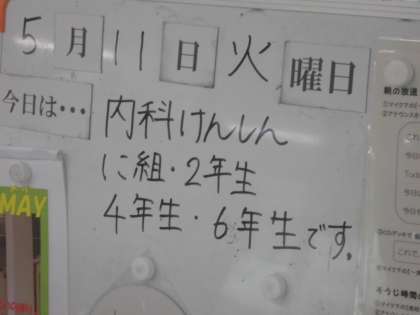 5月11日火曜日
今日は…
内科けんしん
に組・2年生
4年生・6年生です。
MAY
朝の放送
そうじ時間の